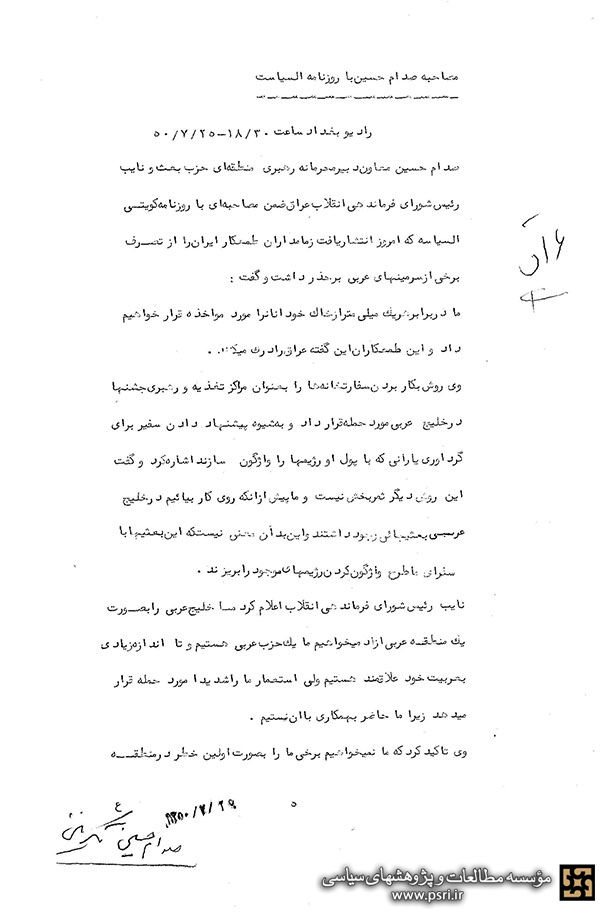 مصاحبه صدام حسین با روزنامه السیاست
رادیو بغداد ساعت ۱۸/۳۰-۵۰/۷/۲۵
صدام حسین معاون دبیر محرمانه رهبری منطقه‌ای حزب بعث و نایب
رئیس شورای فرماندهی انقلاب عراق ضمن مصاحبه‌ای با روزنامه کویتی
السیاسه که امروز انتشار یافت زمامداران طمعکار ایران را از تصرف
برخی از سرمینهای عربی برحذر داشت و گفت :
ما در برابر هر یک میلی متر از خاک خود آنانرا مورد مواخذه قرار خواهیم
داد و این طمعکاران این گفته عراق را درک میکنند .
وی روش بکار بردن سفارتخانه‌ها را بعنوان مراکز تغذیه و رهبری جشنها
در خلیج عربی مورد حمله قرار داد و به شیوه پیشنهاد دادن سفیر برای
گردآوری یارانی که با پول او رژیمها را واژگون سازند اشاره کرد و گفت
این روش دیگر ثمربخش نیست و ما پیش از آنکه روی کار بیائیم در خلیج
عربی بعثیهائی وجود داشتند و این بدان معنی نیست که این بعثیها با
سفرای ما طرح واژگون کردن رژیمهای موجود را بریزند .
نایب رئیس شورای فرماندهی انقلاب اعلام کرد ما خلیج عربی را بصورت
یک منطقه عربی آزاد میخواهیم ما یک حزب عربی هستیم و تا اندازه زیادی
بعربیت خود علاقمند هستیم ولی استعمار ما را شدیدا مورد حمله قرار
میدهد زیرا ما حاضر بهمکاری با آن نیستیم .
وی تاکید کرد که ما نمیخواهیم برخی ما را بصورت اولین خطر در منطقه
۱۳۵۰/۷/۲۹
ع
صدام حسین تکریتی
مؤسسه مطالعات و پژوهشهای سیاسی
www.psri.ir